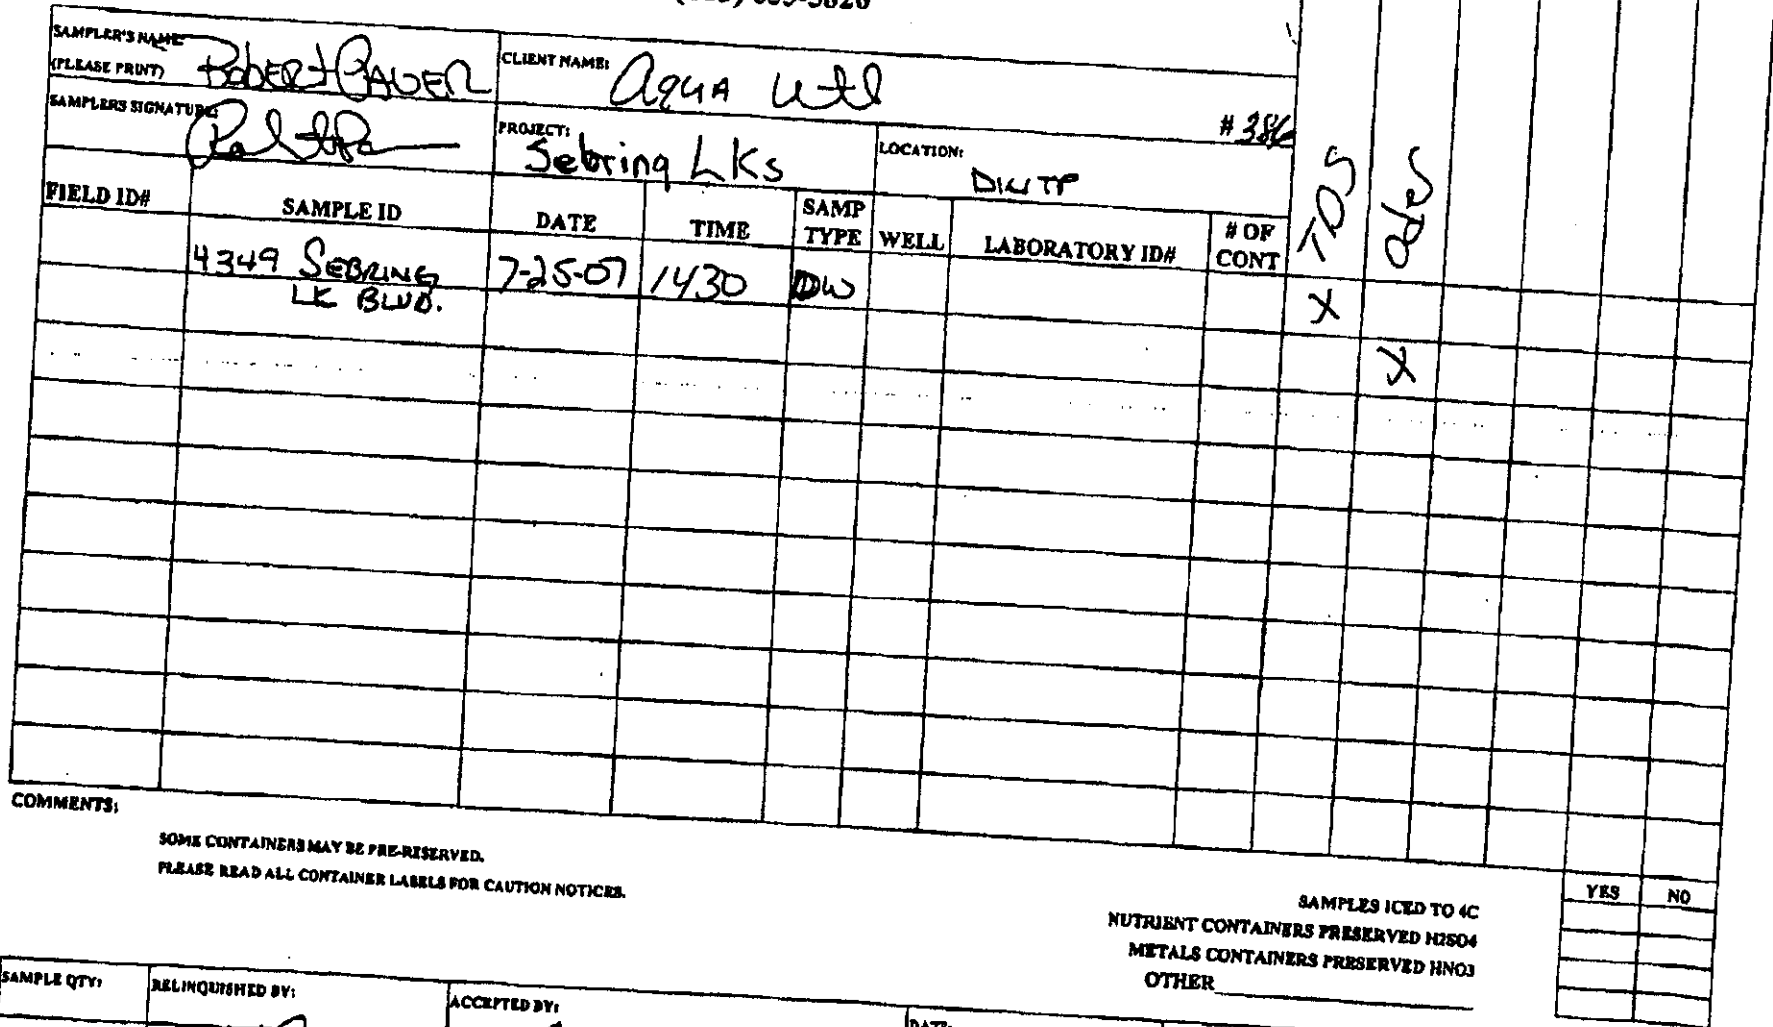 SAMPLER'S NAME: (PLEASE PRINT) Robert
CLIENT NAME: Aqua Utl
#386
SAMPLERS SIGNATURE:
PROJECT: Sebring LKs
LOCATION: DWTP
FIELD ID# SAMPLE ID DATE TIME SAMP TYPE WELL LABORATORY ID# # OF CONT TDS Odor
4349 SEBRING 7-25-07 1430 DW X
LK BLVD.
X
COMMENTS:
SOME CONTAINERS MAY BE PRE-RESERVED.
PLEASE READ ALL CONTAINER LABELS FOR CAUTION NOTICES.
YES NO
SAMPLES ICED TO 4C
NUTRIENT CONTAINERS PRESERVED H2SO4
METALS CONTAINERS PRESERVED HNO3
OTHER
SAMPLE QTY: RELINQUISHED BY: ACCEPTED BY: DATE: